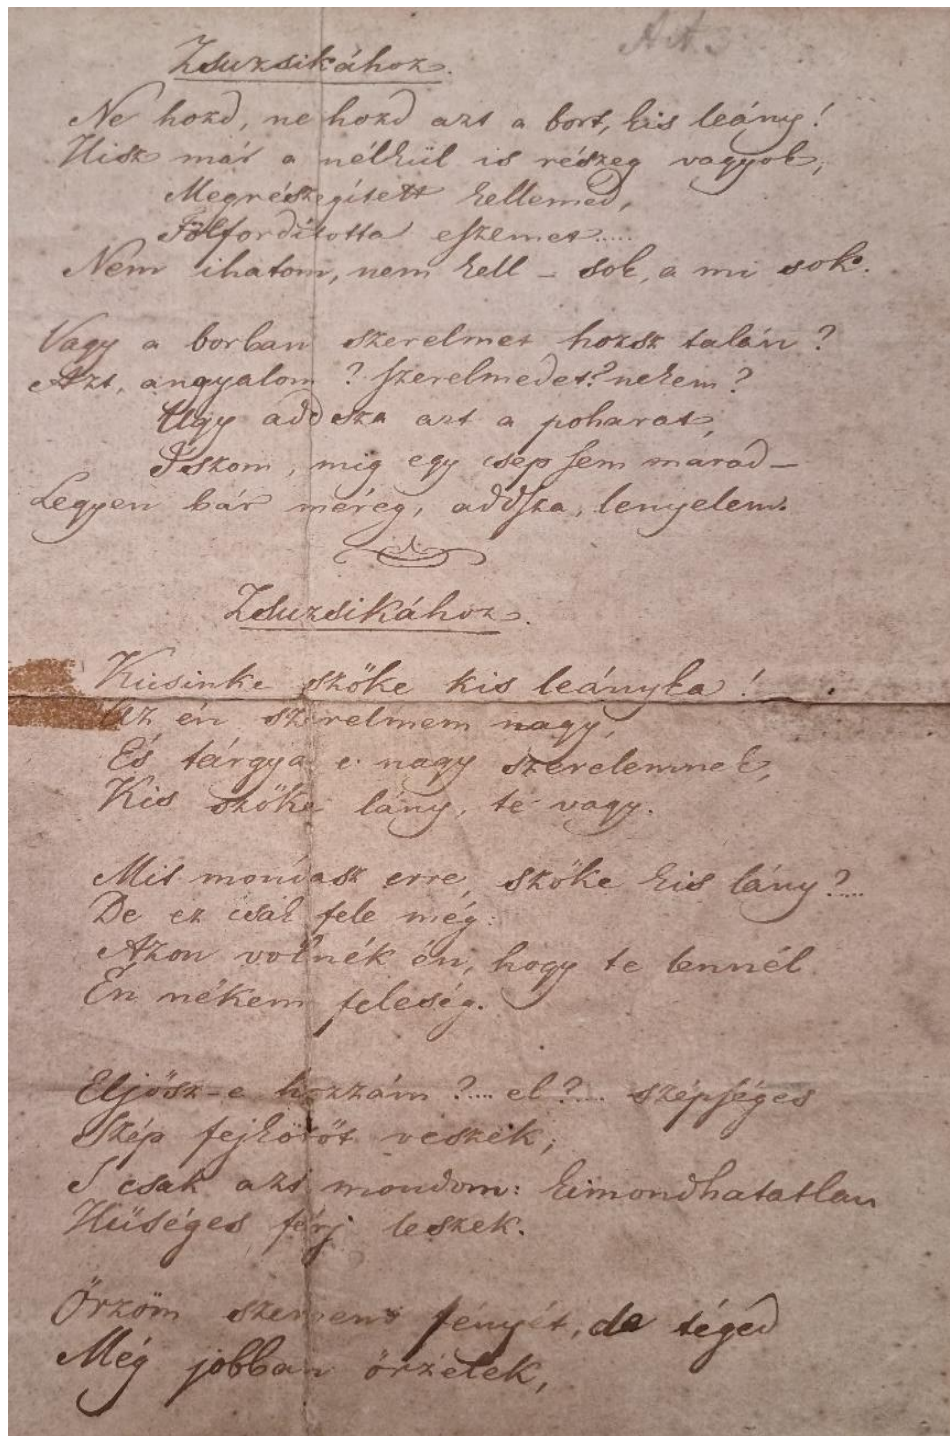 Zsuzsikához.
Ne hozd, ne hozd azt a bort, kis leány!
Hisz már a nélkül is részeg vagyok,
Megrészegített kellemed,
Fölfordította eszemet.....
Nem ihatom, nem kell – sok, a mi sok.
Vagy a borban szerelmet hozsz talán?
Azt, angyalom? szerelmedet? nekem?
Ugy addsza azt a poharat,
Iszom, mig egy csep sem marad –
Legyen bár méreg, addsza, lenyelem.
Zsuzsikához.
Kicsinke szőke kis leányka!
Az én szerelmem nagy,
És tárgya e nagy szerelemnek,
Kis szőke lány, te vagy.
Mit mondasz erre, szőke kis lány?....
De ez csak fele még:
Azon volnék én, hogy te lennél
Én nékem feleség.
Eljősz-e hozzám?.... el?.... szépséges
Szép fejkötőt veszek;
S csak azt mondom: kimondhatatlan
Hűséges férj leszek.
Őrzöm szemem fényét, de téged
Még jobban őrzelek,